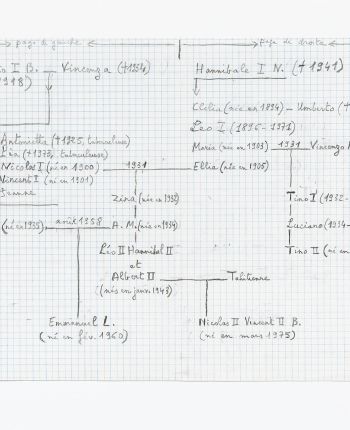 page de gauche
page de droite
I B. – Vincenza (†1954)
1918)
Hannibale I N. († 1941)
Clélia (née en 1894) – Umberto (†
Léo I (1896-1971)
Antonietta (†1925, tuberculeuse)
Léa (†1973, tuberculeuse)
Nicolas I (né en 1900) 1931 Ellia (née en 1905)
Maria (née en 1903) 1931 Vincenzo
Vincent I (né en 1901)
Jeanne
Zina (née en 1932)
Tino I (1932-
(né en 1935) août 1958 A.M. (née en 1934)
Luciano (1934-
Léo II Hannibal II
et
Albert II Tahitienne
(nés en janv. 1943)
Tino II (né en
Emmanuel L.
(né en fév. 1960)
Nicolas II Vincent II B.
(né en mars 1975)